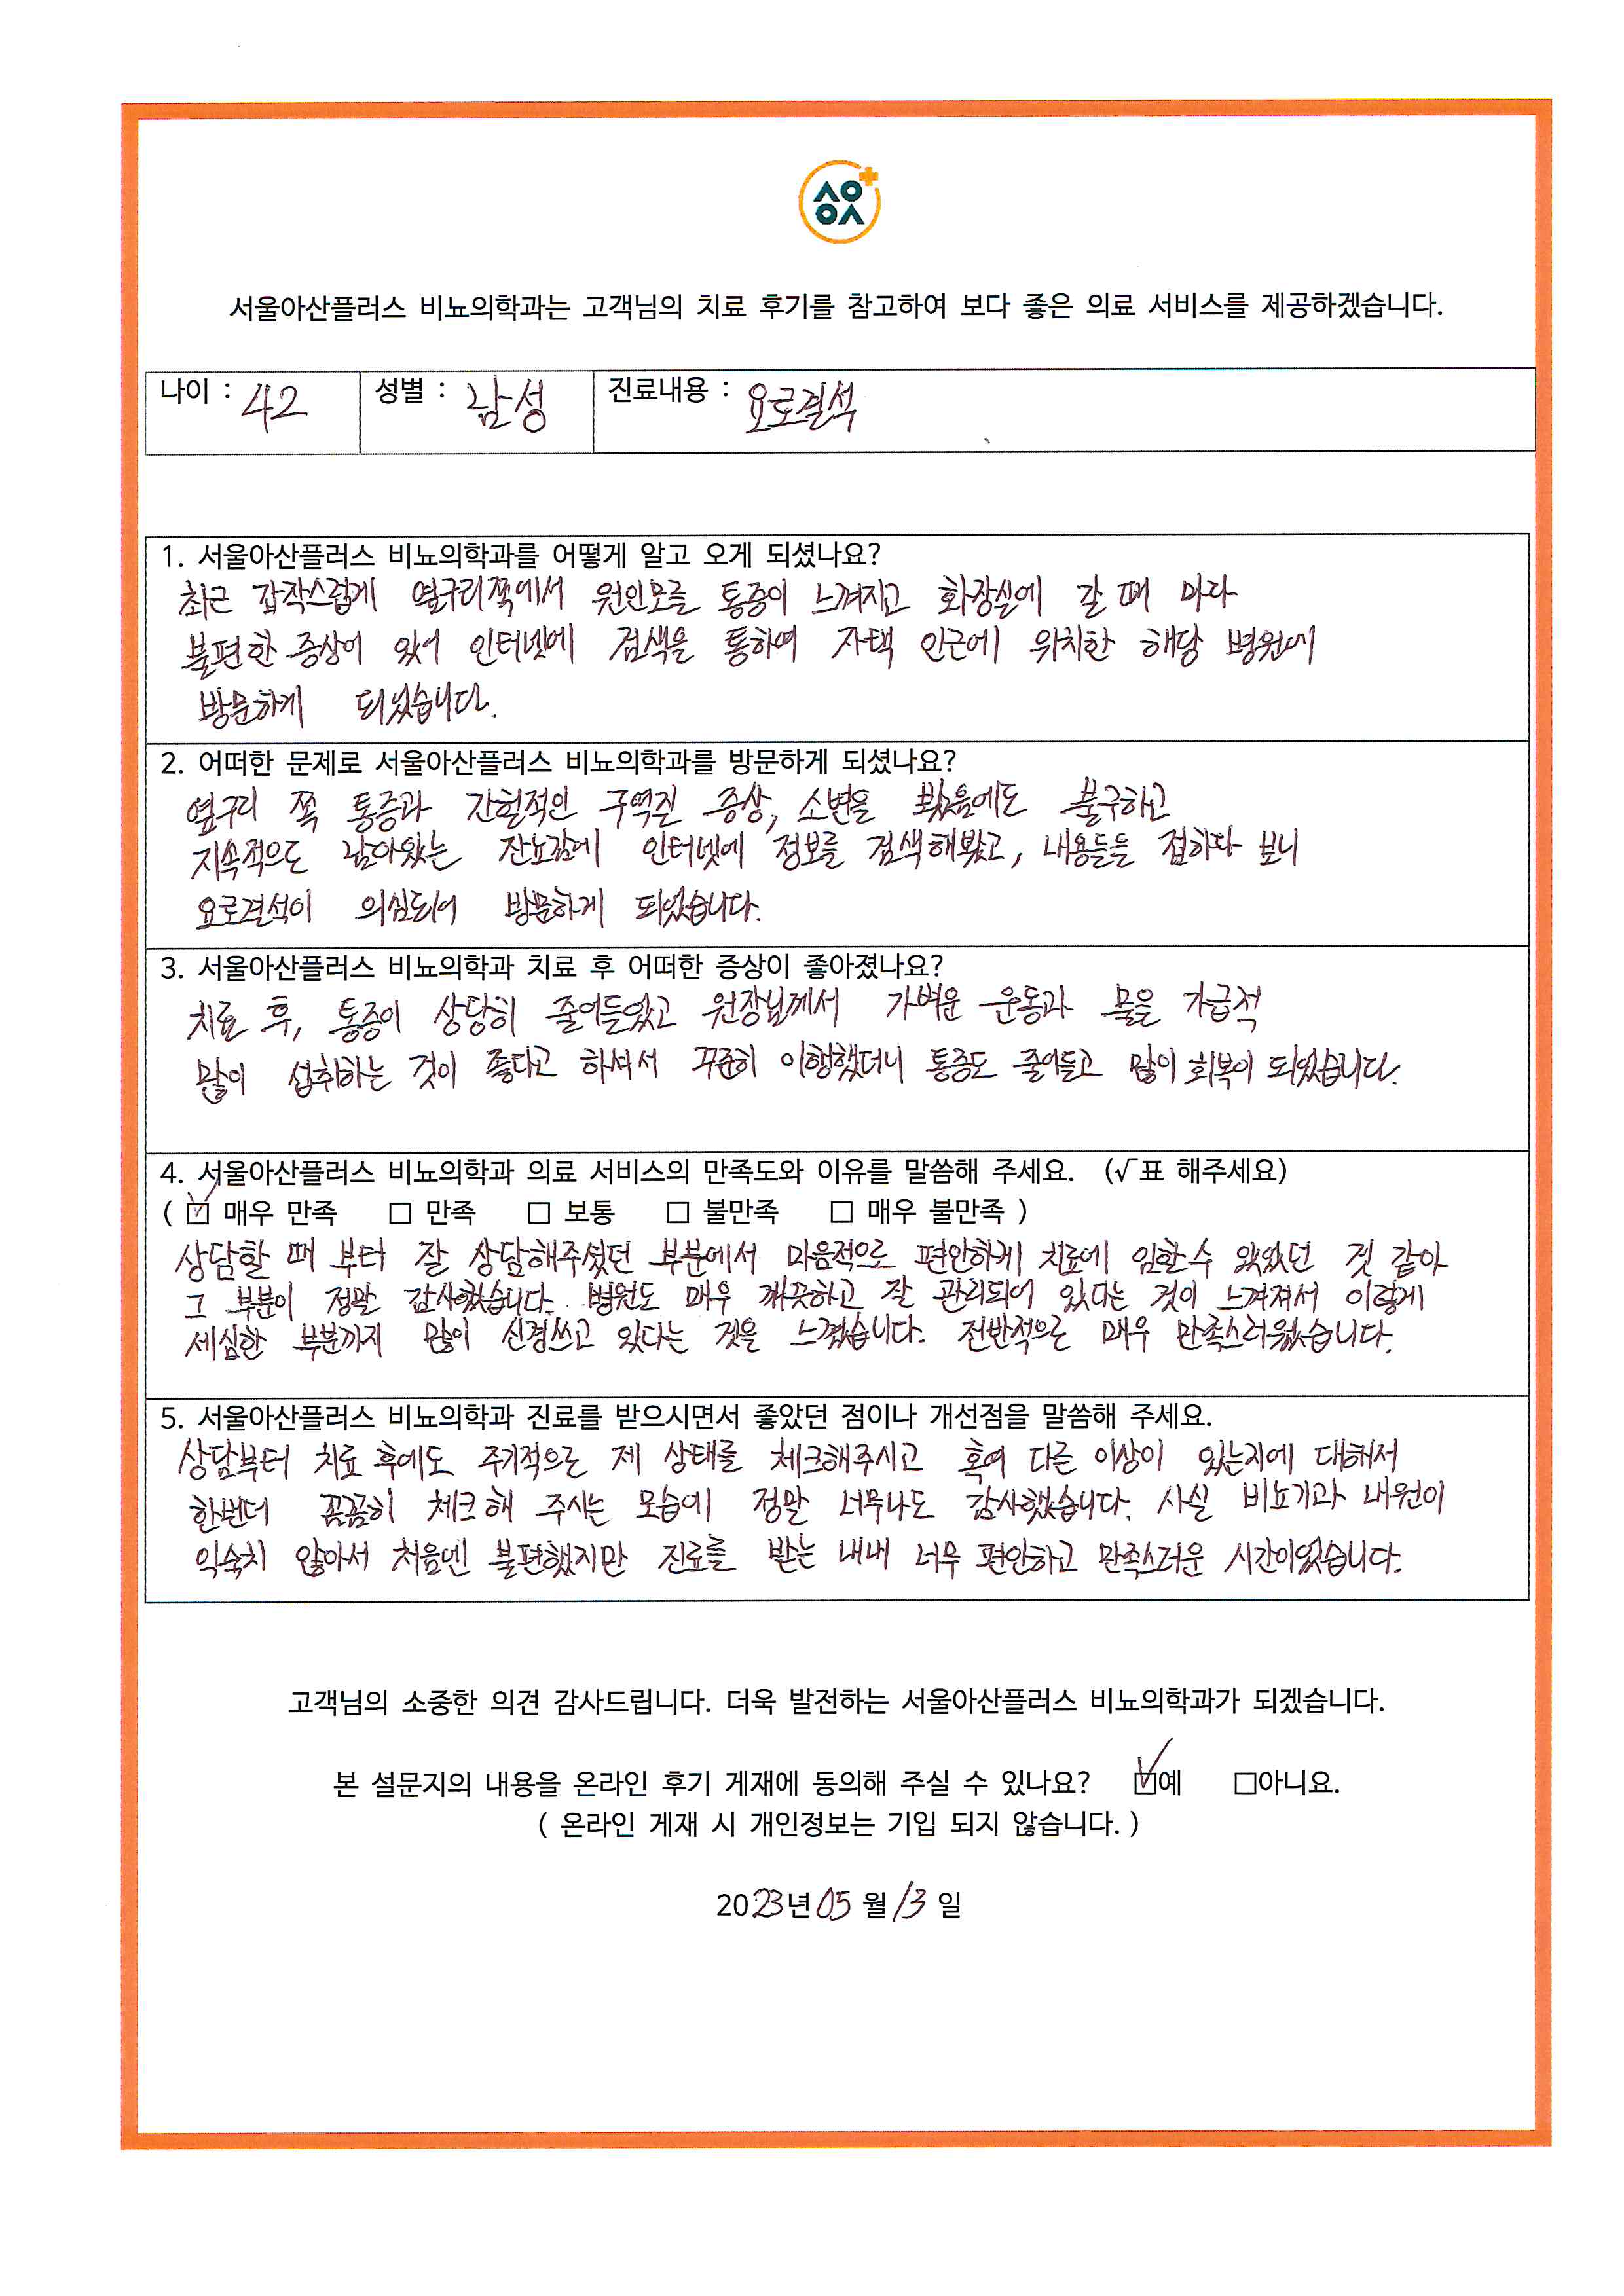 서울아산플러스 비뇨의학과는 고객님의 치료 후기를 참고하여 보다 좋은 의료 서비스를 제공하겠습니다.
나이 : 42 성별 : 남성 진료내용 : 요로결석
1. 서울아산플러스 비뇨의학과를 어떻게 알고 오게 되셨나요?
최근 갑작스럽게 옆구리쪽에서 원인모를 통증이 느껴지고 화장실에 갈 때 마다
불편한 증상이 있어 인터넷에 검색을 통하여 자택 인근에 위치한 해당 병원에
방문하게 되었습니다.
2. 어떠한 문제로 서울아산플러스 비뇨의학과를 방문하게 되셨나요?
옆구리 쪽 통증과 간헐적인 구역질 증상, 소변을 봤음에도 불구하고
지속적으로 남아있는 잔뇨감에 인터넷에 정보를 검색해봤고, 내용들을 접하다 보니
요로결석이 의심되어 방문하게 되었습니다.
3. 서울아산플러스 비뇨의학과 치료 후 어떠한 증상이 좋아졌나요?
치료 후, 통증이 상당히 줄어들었고 원장님께서 가벼운 운동과 물을 가급적
많이 섭취하는 것이 좋다고 하셔서 꾸준히 이행했더니 통증도 줄어들고 많이 회복이 되었습니다.
4. 서울아산플러스 비뇨의학과 의료 서비스의 만족도와 이유를 말씀해 주세요. (√표 해주세요)
( ☑ 매우 만족 □ 만족 □ 보통 □ 불만족 □ 매우 불만족 )
상담할 때 부터 잘 상담해주셨던 부분에서 마음적으로 편안하게 치료에 임할수 있었던 것 같아
그 부분이 정말 감사했습니다. 병원도 매우 깨끗하고 잘 관리되어 있다는 것이 느껴져서 이렇게
세심한 부분까지 많이 신경쓰고 있다는 것을 느꼈습니다. 전반적으로 매우 만족스러웠습니다.
5. 서울아산플러스 비뇨의학과 진료를 받으시면서 좋았던 점이나 개선점을 말씀해 주세요.
상담부터 치료 후에도 주기적으로 제 상태를 체크해주시고 혹여 다른 이상이 있는지에 대해서
한번더 꼼꼼히 체크해 주시는 모습에 정말 너무나도 감사했습니다. 사실 비뇨기과 내원이
익숙치 않아서 처음엔 불편했지만 진료를 받는 내내 너무 편안하고 만족스러운 시간이었습니다.
고객님의 소중한 의견 감사드립니다. 더욱 발전하는 서울아산플러스 비뇨의학과가 되겠습니다.
본 설문지의 내용을 온라인 후기 게재에 동의해 주실 수 있나요? ☑예 □아니요.
( 온라인 게재 시 개인정보는 기입 되지 않습니다. )
2023년 05월 13일